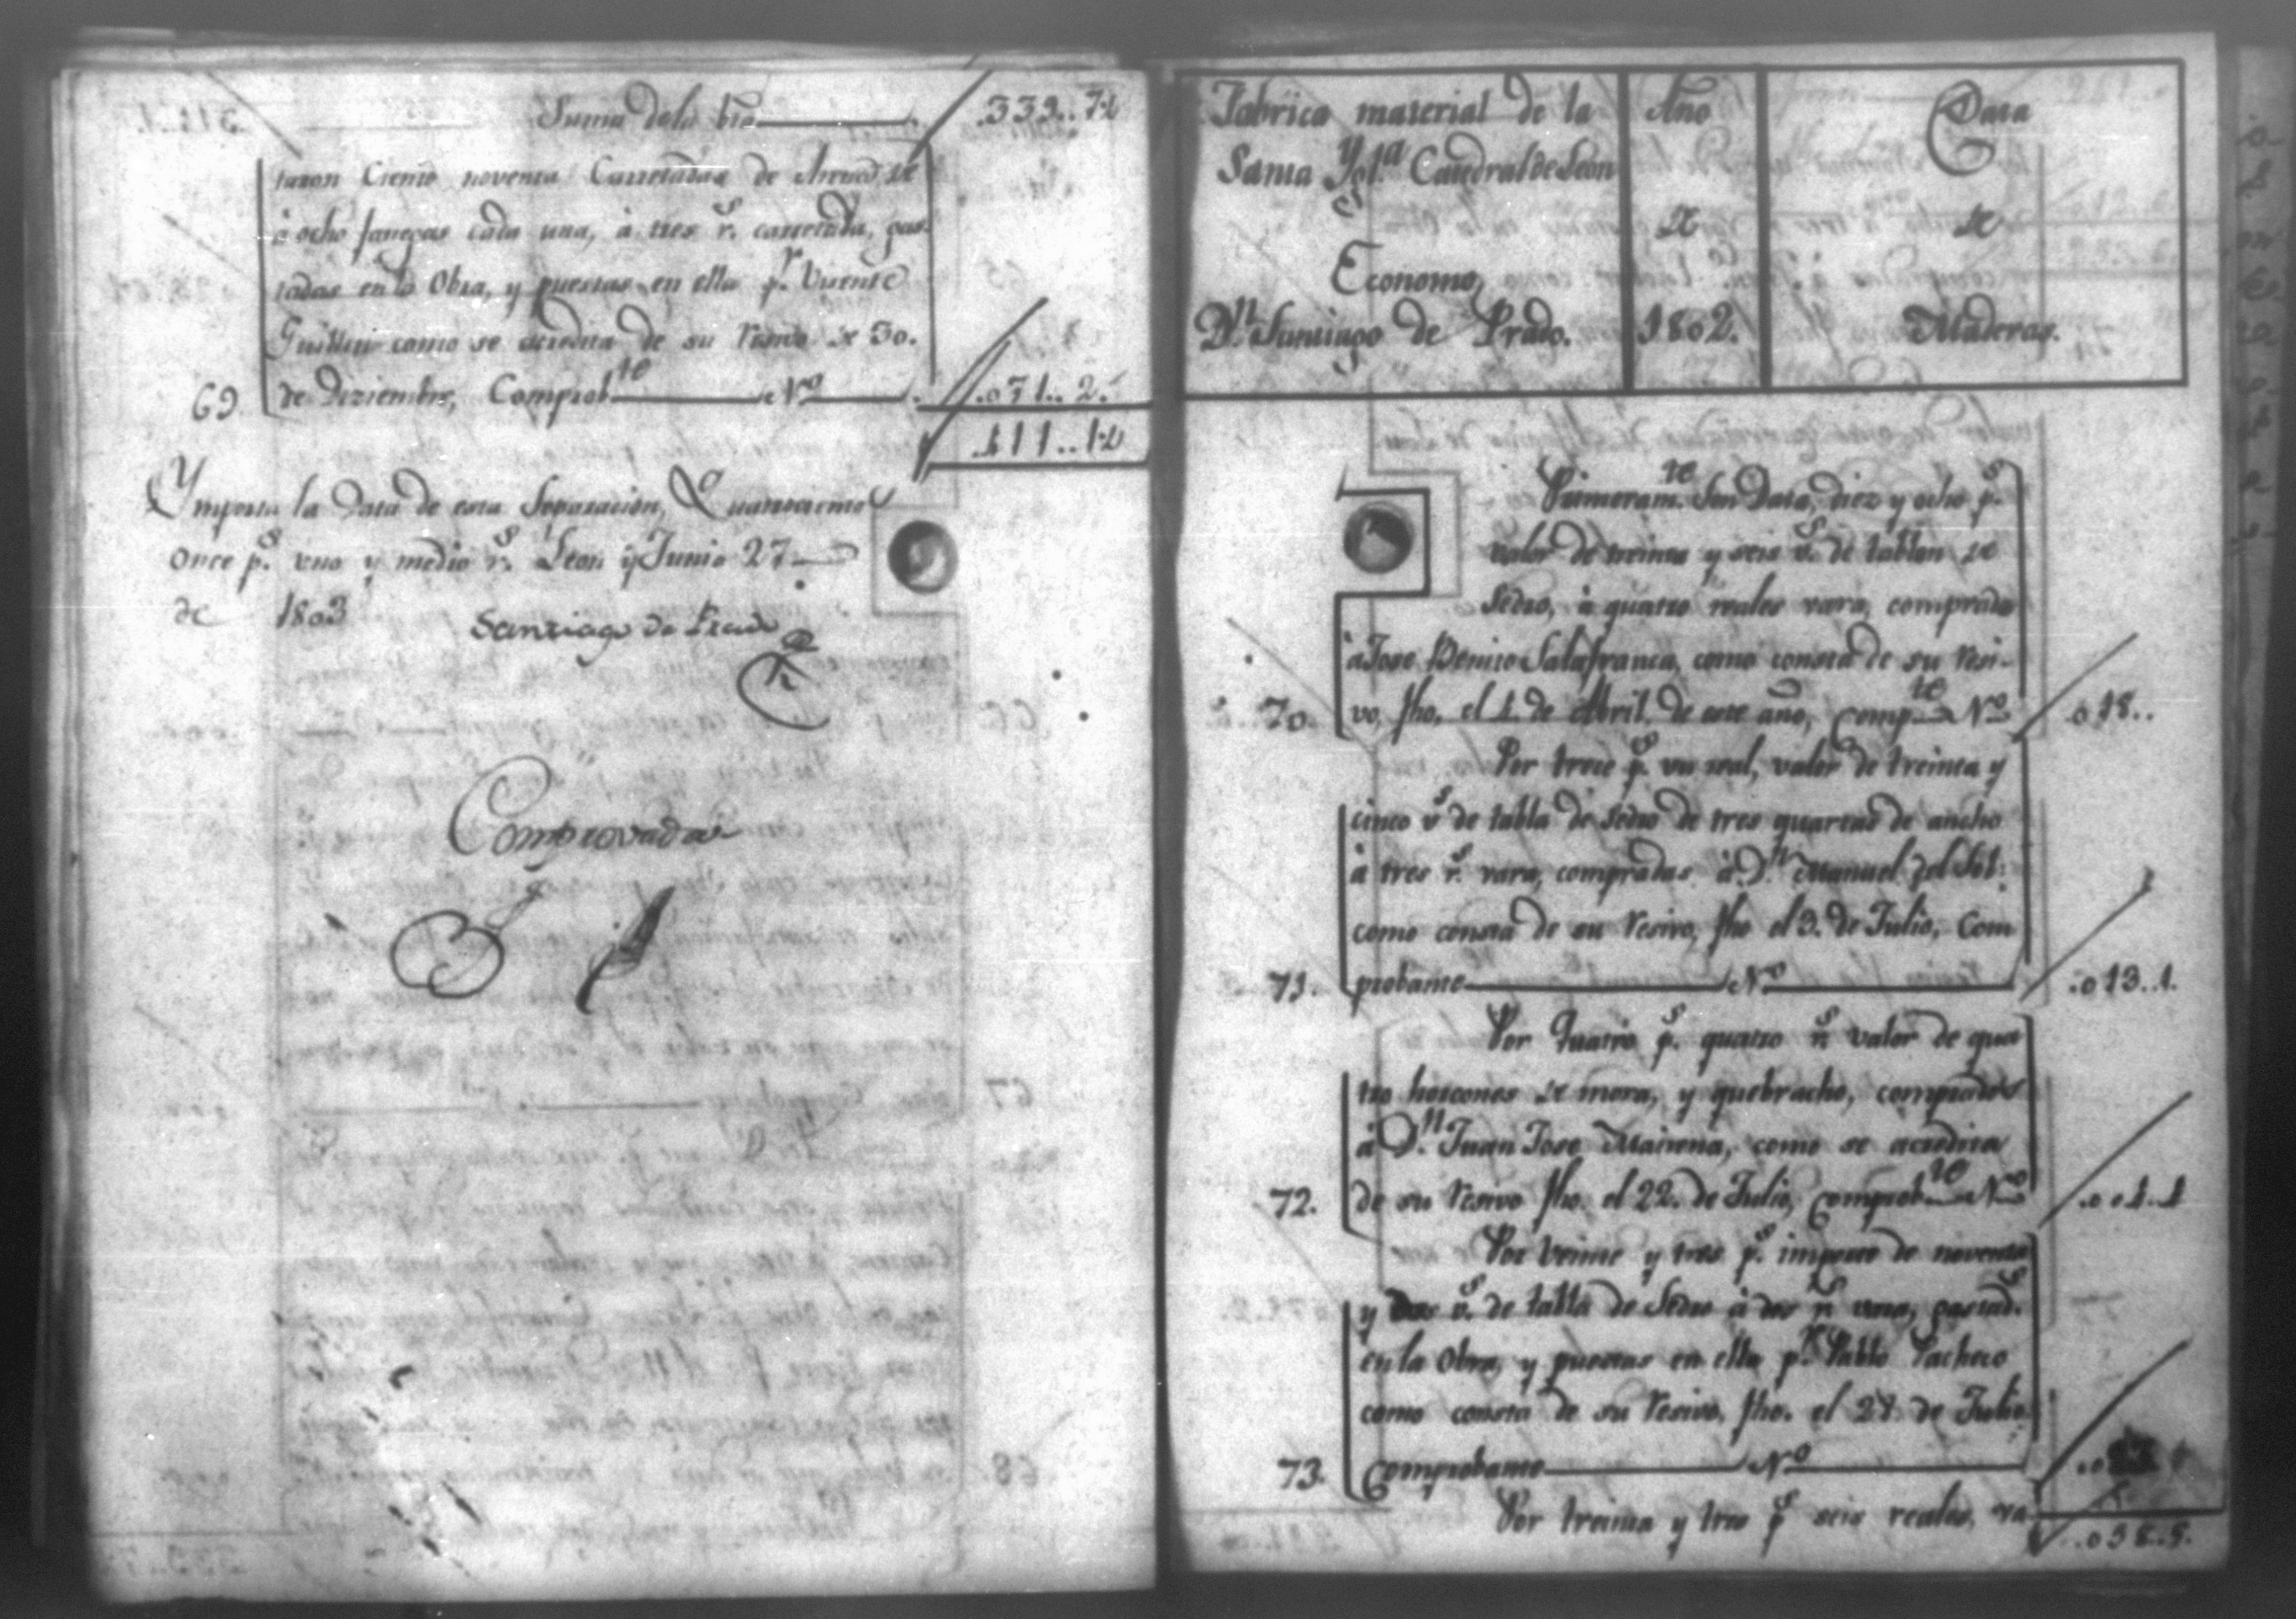 Suma de la bta .339..7½
taron Ciento noventa Carretadas de Arena de
à ocho fanegas cada una, à tres r.s carretada, gas-
tadas en la Obra, y puestas en ella p.r Vicente
Guillen como se acredita de su Resivo de 30.
69 de Diziembre, Comprob.te Nº .071..2.
.411..1½
Ymporta la Data de esta Separacion, Quatrocientos
once p.s uno y medio r.s Leon y Junio 27
de 1803
Santiago de Prado
Comprovada
Fabrica material de la
Santa Ygl.a Catedral de Leon
Economo
D.n Santiago de Prado.
Año
de
1802.
Data
de
Maderas.
Primeram.te Son Data, diez y ocho p.s
valor de treinta y seis v.s de tablon de
Sedro, à quatro reales vara, comprada
à Jose Benito Salafranca, como consta de su resi-
70. vo, fho, el 1. de Abril de este año, Comp.te Nº .018..
Por trece p.s un real, valor de treinta y
cinco v.s de tabla de sedro de tres quartas de ancho
à tres r.s vara, compradas à D.n Manuel del Sol:
como consta de su Resivo, fho el 3. de Julio, Com
71. probante Nº .013..1.
Por Quatro p.s quatro r.s valor de qua
tro horcones de mora, y quebracho, comprados
à D.n Juan Jose Mairena, como se acredita
72. de su Resivo fho. el 22. de Julio, Comprob.te Nº .004..4
Por Veinte y tres p.s importe de noventa
y dos v.s de tabla de Sedro à dos r.s vara, gastad.s
en la Obra, y puestas en ella p.r Pablo Pacheco
como consta de su Resivo, fho. el 27 de Julio
73. Comprobante Nº
Por treinta y tres p.s seis reales, va
.058..5.